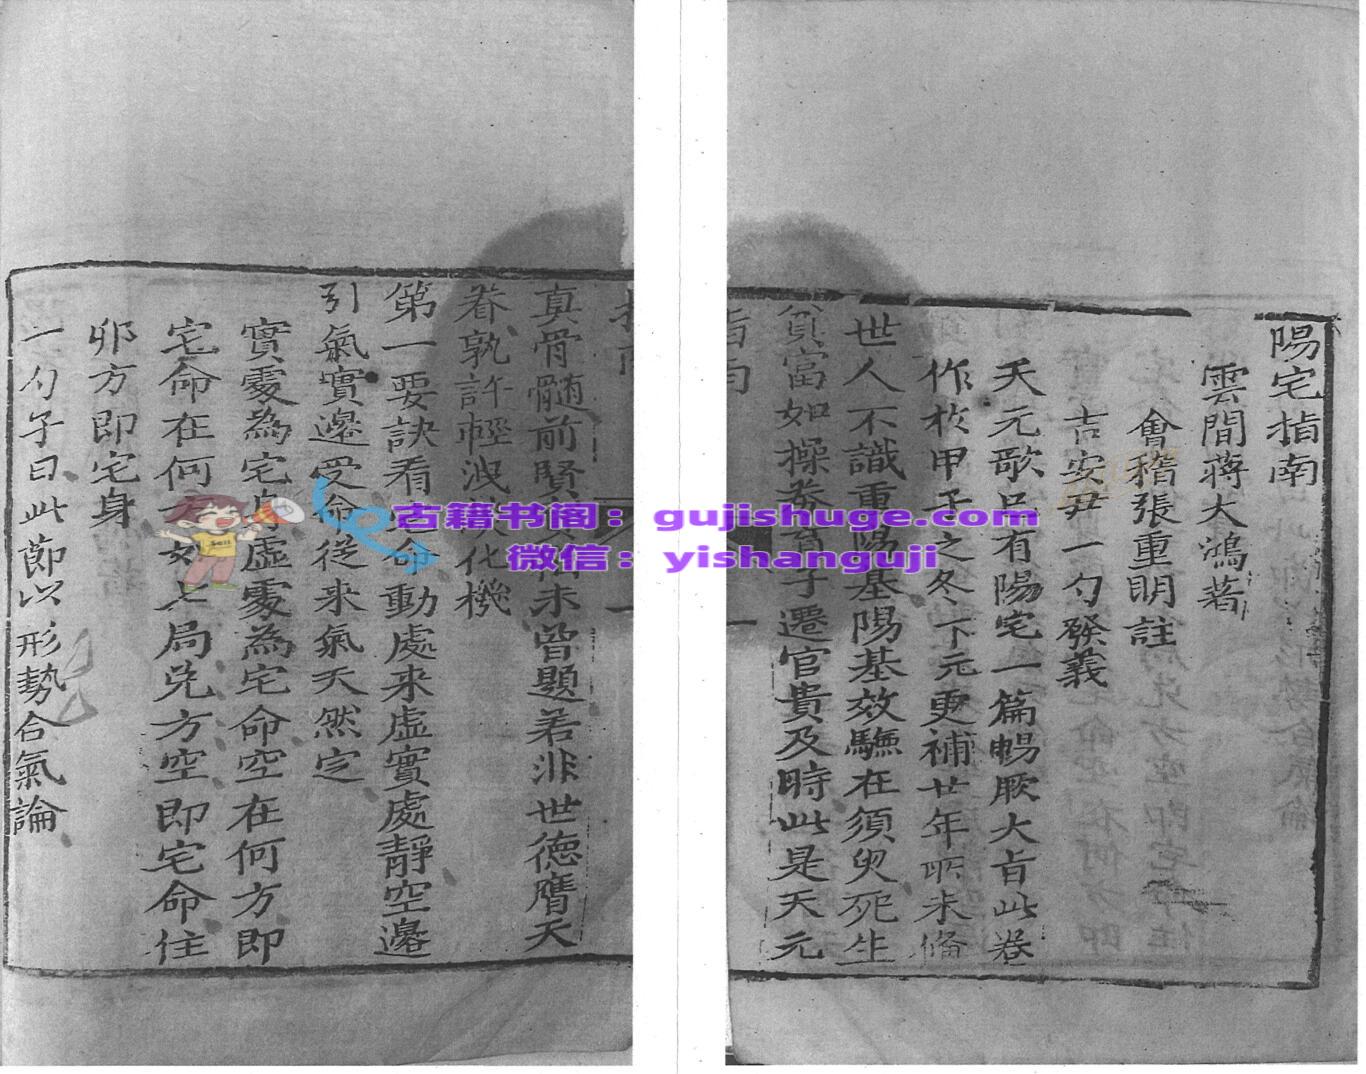 陽宅指南
雲間蔣大鴻著
會稽張重明註
吉安尹一勺發義
天元歌只有陽宅一篇暢厥大旨此卷
作於甲子之冬下元更補廿年所未備
世人不識重陽基陽基效驗在須臾死生
貧富如操券育子遷官貴及時此是天元
指南
一
真骨髓前賢未曾題若非世德膺天
眷孰許輕洩化機
第一要訣看命動處来虛實處靜空邊
引氣實邊受命從来氣天然定
實處為宅虛處為宅命空在何方即
宅命在何如上局兌方空即宅命住
卯方即宅身
一勺子曰此節以形勢合氣論
古籍书阁：gujishuge.com
微信：yishanguji